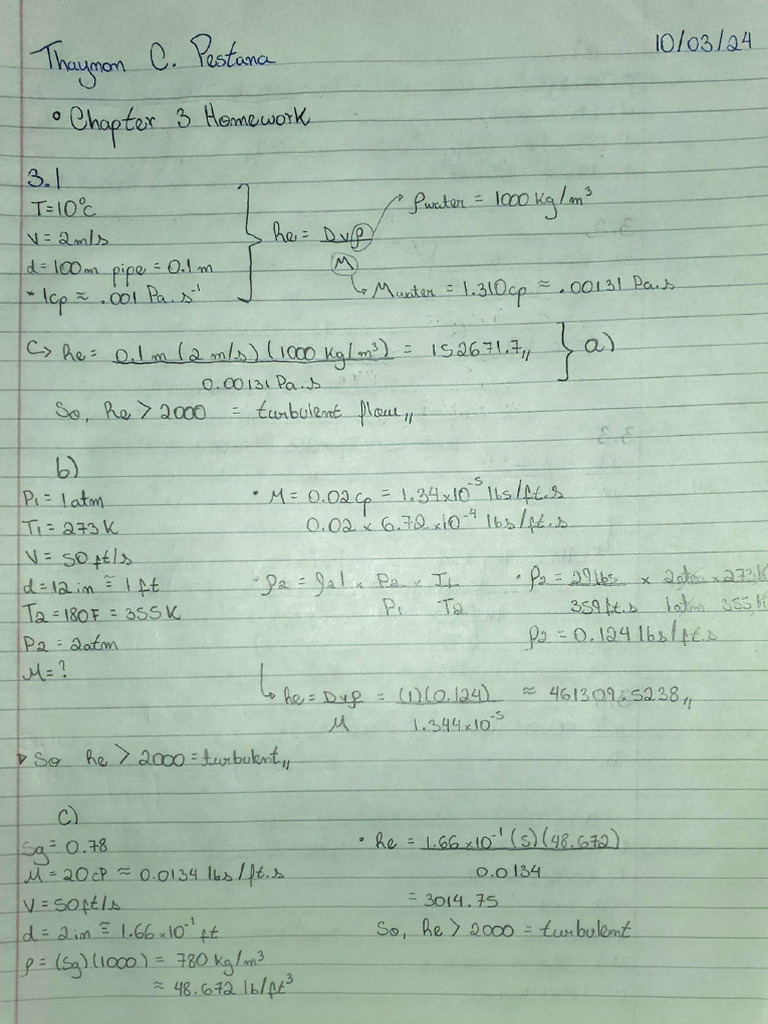 Thaynon C. Pestana
10/03/24
• Chapter 3 Homework
3.1
T=10°C
V = 2m/s
d = 100m pipe = 0.1m
* 1cp ≈ .001 Pa.s⁻¹
Re = Dvρ
M
ρwater = 1000 Kg/m³
Mwater = 1.310cp ≈ .00131 Pa.s
↳ Re = 0.1m (2 m/s) (1000 Kg/m³) = 152671.7,,
0.00131 Pa.s
a)
So, Re > 2000 = turbulent flow,,
b)
P₁ = 1atm
T₁ = 273 K
V = 50 ft/s
d = 12 in ≅ 1 ft
T₂ = 180F = 355K
P₂ = 2atm
M = ?
• M = 0.02cp = 1.34x10⁻⁵ lbs/ft.s
0.02 x 6.72 x10⁻⁴ lbs/ft.s
• ρ₂ = ρ₂1 x P₂ x T₁
P₁ T₂
• ρ₂ = 29lbs x 2atm x 273K
359 ft.s 1atm 355K
ρ₂ = 0.124 lbs/ft.s
↳ Re = Dvρ = (1)(0.124) ≈ 461309.5238,,
M 1.344x10⁻⁵
So Re > 2000 = turbulent,,
c)
Sg = 0.78
M = 20cP ≈ 0.0134 lbs/ft.s
V = 50ft/s
d = 2in ≅ 1.66x10⁻¹ ft
ρ = (Sg)(1000) = 780 Kg/m³
≈ 48.672 lb/ft³
• Re = 1.66x10⁻¹ (5)(48.672)
0.0134
= 3014.75
So, Re > 2000 = turbulent